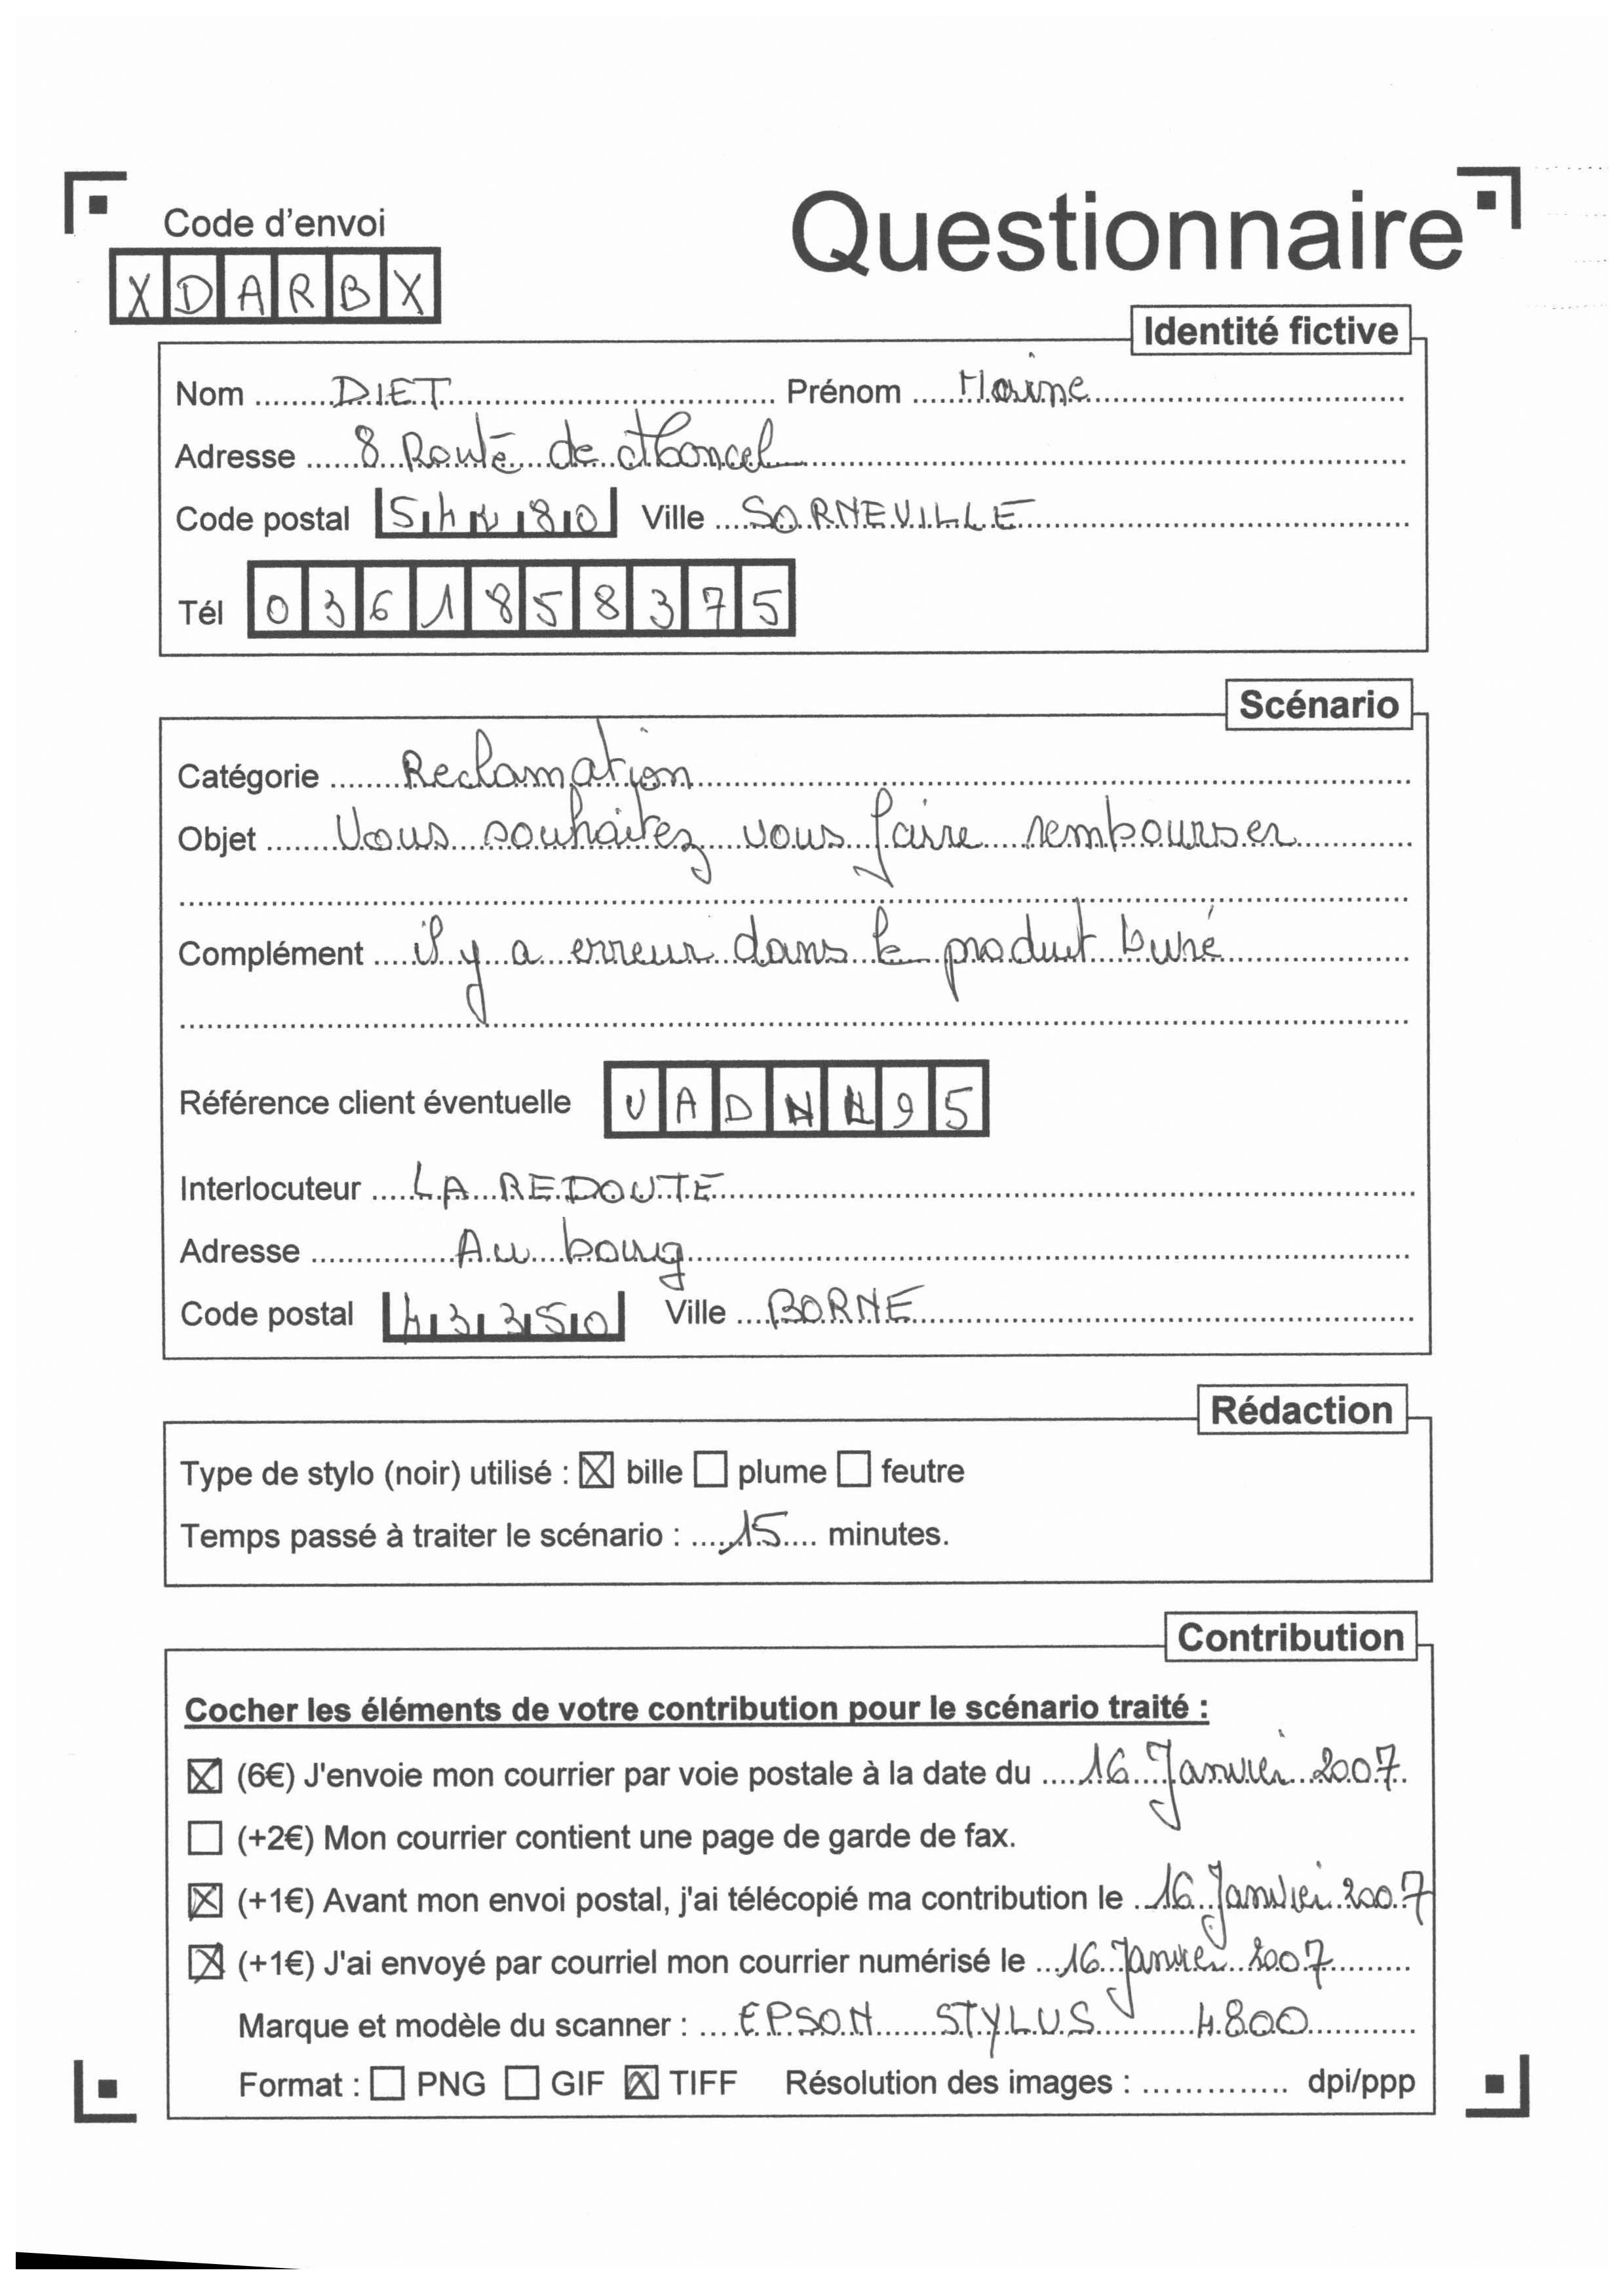 Code d'envoi
Questionnaire
XDARBX
Identité fictive
Nom DIET Prénom Maine
Adresse 8 Route de
Code postal 54280 Ville SORNEVILLE
Tél 0361858375
Scénario
Catégorie Reclamation
Objet Vous souhaitez vous faire rembourser
Complément il y a erreur dans le produit livré
Référence client éventuelle VADNL95
Interlocuteur LA REDOUTE
Adresse Au bourg
Code postal 43350 Ville BORNE
Rédaction
Type de stylo (noir) utilisé : ☒ bille ☐ plume ☐ feutre
Temps passé à traiter le scénario : 15 minutes.
Contribution
Cocher les éléments de votre contribution pour le scénario traité :
☒ (6€) J'envoie mon courrier par voie postale à la date du 16 Janvier 2007
☐ (+2€) Mon courrier contient une page de garde de fax.
☒ (+1€) Avant mon envoi postal, j'ai télécopié ma contribution le 16 Janvier 2007
☒ (+1€) J'ai envoyé par courriel mon courrier numérisé le 16 Janvier 2007
Marque et modèle du scanner : EPSON STYLUS 4800
Format : ☐ PNG ☐ GIF ☒ TIFF Résolution des images : .............. dpi/ppp